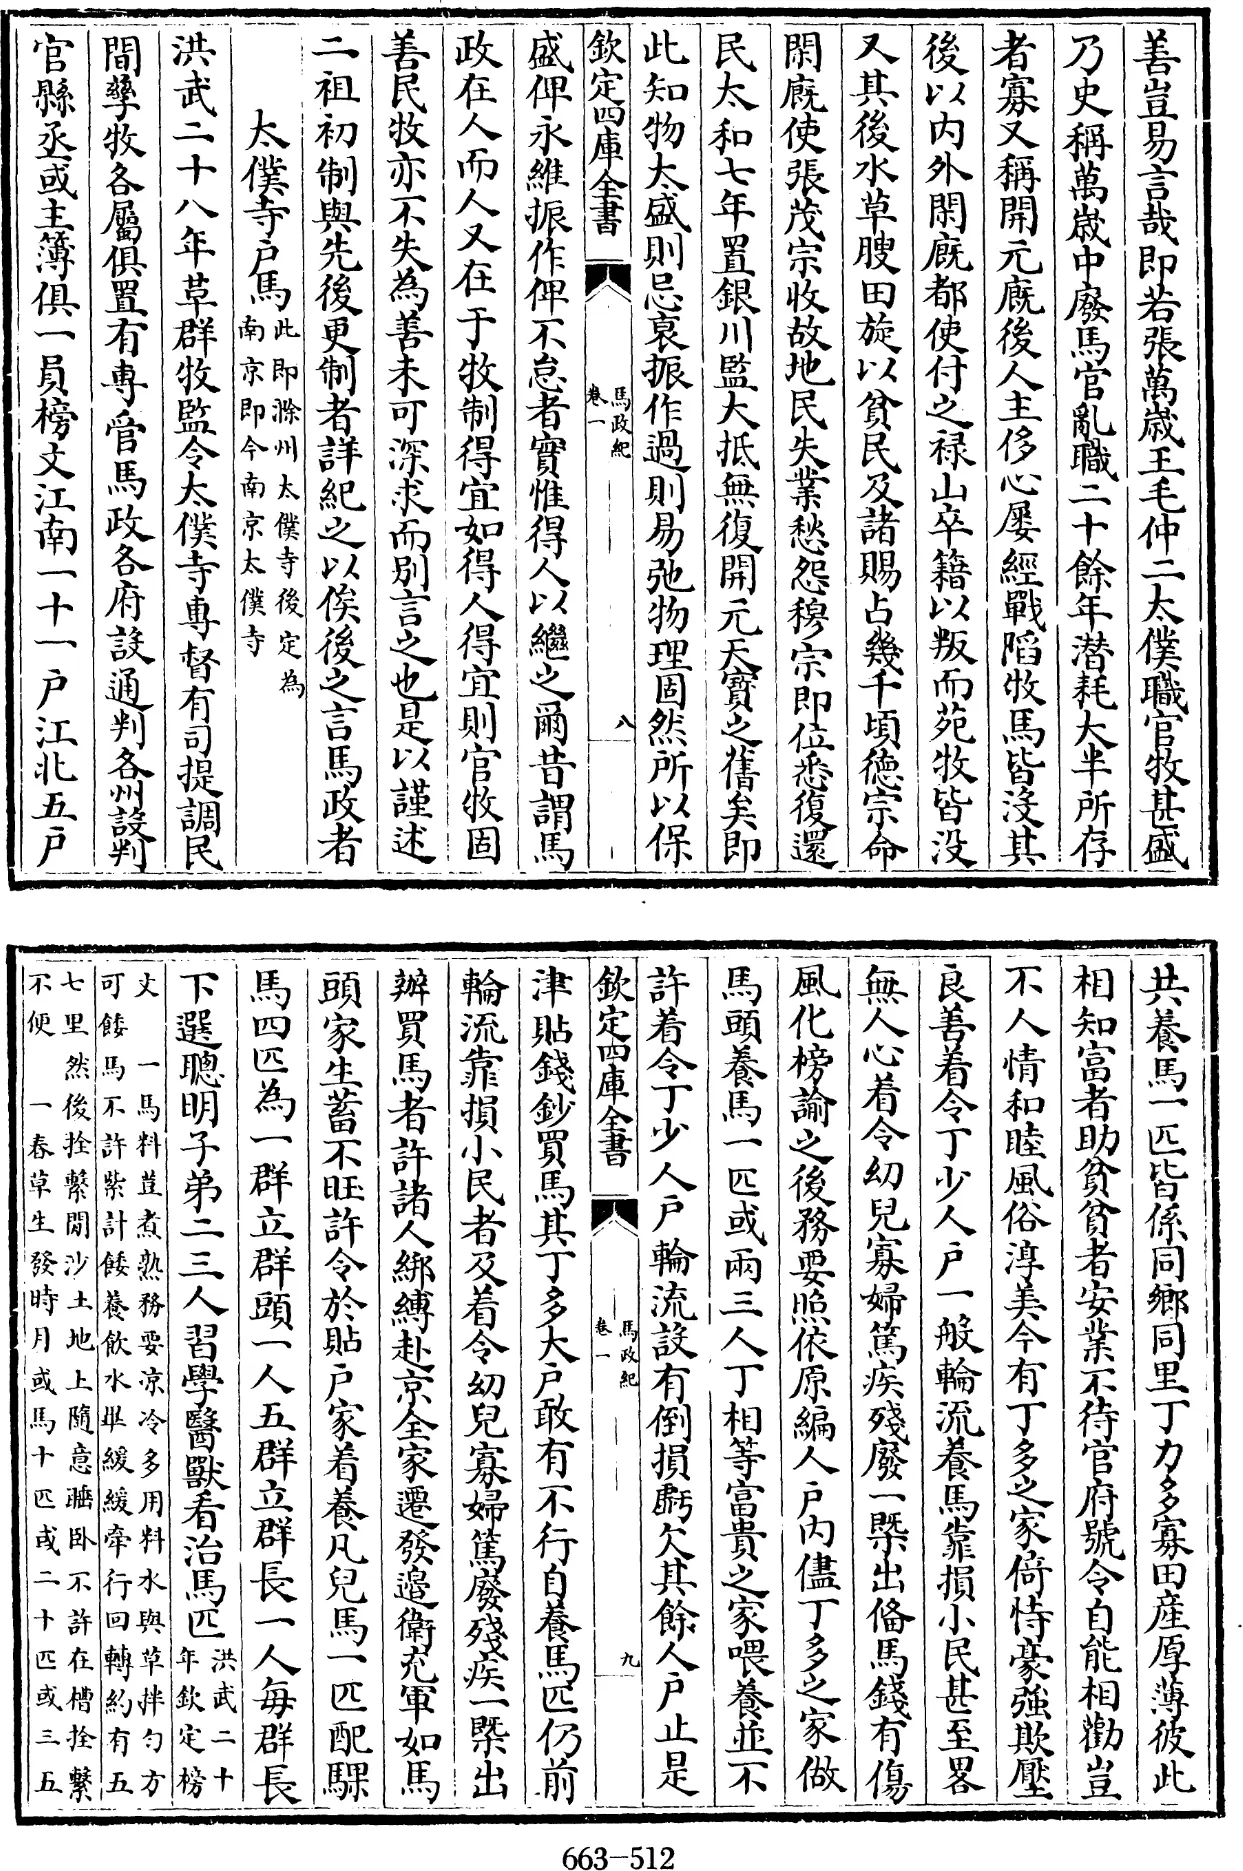 善豈易言哉即若張萬歲王毛仲二太僕職官牧甚盛
乃史稱萬歲中廢馬官亂職二十餘年潛耗大半所存
者寡又稱開元廐後人主侈心屢經戰陷牧馬皆沒其
後以内外閑廐都使付之禄山卒籍以叛而苑牧皆没
又其後水草腴田旋以貧民及諸賜占幾千頃德宗命
閑廐使張茂宗收故地民失業愁怨穆宗即位悉復還
民太和七年置銀川監大抵無復開元天寶之舊矣即
此知物太盛則忌衰振作過則易弛物理固然所以保
欽定四庫全書
馬政紀
卷一
八
盛俾永維振作俾不怠者實惟得人以繼之爾昔謂馬
政在人而人又在于牧制得宜如得人得宜則官牧固
善民牧亦不失為善未可深求而別言之也是以謹述
二祖初制與先後更制者詳紀之以俟後之言馬政者
太僕寺户馬
此即滁州太僕寺後定為
南京即今南京太僕寺
洪武二十八年草群牧監令太僕寺專督有司提調民
間孳牧各屬俱置有專管馬政各府設通判各州設判
官縣丞或主簿俱一員榜文江南一十一户江北五户
共養馬一匹皆係同鄉同里丁力多寡田産厚薄彼此
相知富者助貧貧者安業不待官府號令自能相勸豈
不人情和睦風俗淳美今有丁多之家倚恃豪強欺壓
良善着令丁少人户一般輪流養馬靠損小民甚至畧
無人心着令幼兒寡婦篤疾殘廢一槩出俻馬錢有傷
風化榜諭之後務要照依原編人户内儘丁多之家做
馬頭養馬一匹或兩三人丁相等富貴之家喂養並不
許着令丁少人户輪流設有倒損虧欠其餘人户止是
欽定四庫全書
馬政紀
卷一
九
津貼錢鈔買馬其丁多大户敢有不行自養馬匹仍前
輪流靠損小民者及着令幼兒寡婦篤廢殘疾一槩出
辦買馬者許諸人綁縛赴京全家遷發邉衛充軍如馬
頭家生蓄不旺許令於貼户家着養凡兒馬一匹配騍
馬四匹為一群立群頭一人五群立群長一人每群長
下選聰明子弟二三人習學醫獸看治馬匹
洪武二十
年欽定榜
文 一馬料荳煮熟務要凉冷多用料水與草拌勻方
可餧馬不許柴計餧養飲水畢緩緩牽行回轉約有五
七里然後拴繫閒沙土地上隨意𩥇卧不許在槽拴繫
不便 一春草生發時月或馬十匹或二十匹或三五
663-512